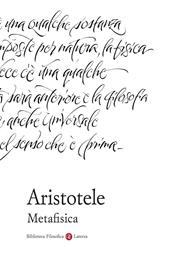 una qualche sostanza
mposte per natura, la fisica
ece c'è una qualche
sarà anteriore e la filosofia
anche universale
el senso che è prima
Aristotele
Metafisica
Biblioteca Filosofica Laterza